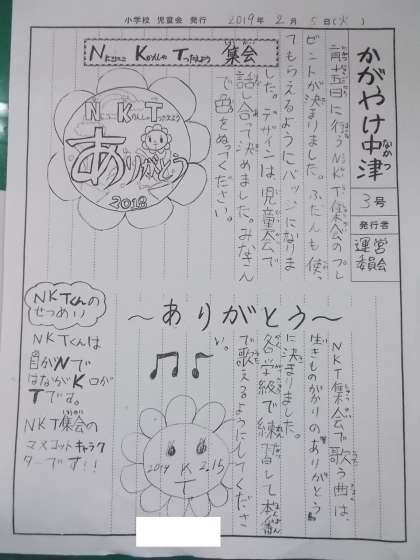 小学校 児童会 発行 2019年2月5日(火)
かがやけ中津
なかつ
3号
発行者
運営
委員会
NにこにこKかんしゃTつたえよう 集会
に行うNKT集会のプレ
ゼントが決まりました。ふだんも使っ
てもらえるようにバッジになりま
した。デザインは児童会で
話し合って決めました。みなさん
で色をぬってください。
NKT
ありがとう
2018
〜ありがとう〜
NKT集会で歌う曲は、
生きものがかりのありがとう
に決まりました。
各学級で練習して本番
で歌えるようにしてくださ
い。
NKTくんの
せつめい
NKTくんは
目がNで
はながK口が
Tです。
NKT集会の
マスコットキャラク
ターです!!
2019 K 2.15
T